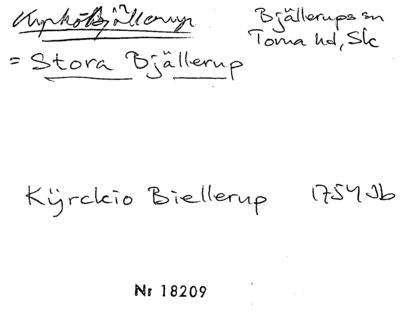 Kyrkobjällerup Bjällerups sn
Torna hd, Sk
= Stora Bjällerup
Kÿrckio Biellerup 1754 Jb
Nr 18209